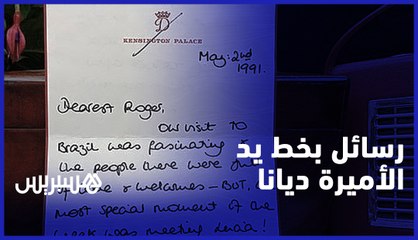 D
KENSINGTON PALACE
May: 2nd
1991.
Dearest Roger,
Our visit to
Brazil was fascinating
the people there were
welcomes - BUT,
most special moment of the
week was meeting
رسائل بخط يد
الأميرة ديانا
هسبريس